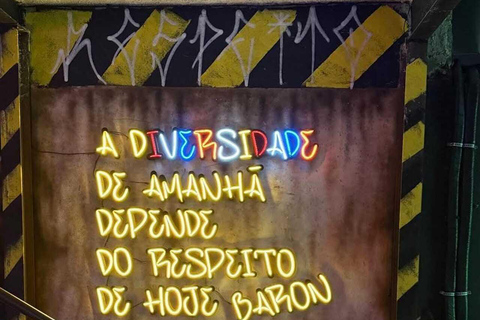 RESPEITO
A DIVERSIDADE
DE AMANHÃ
DEPENDE
DO RESPEITO
DE HOJE BARON